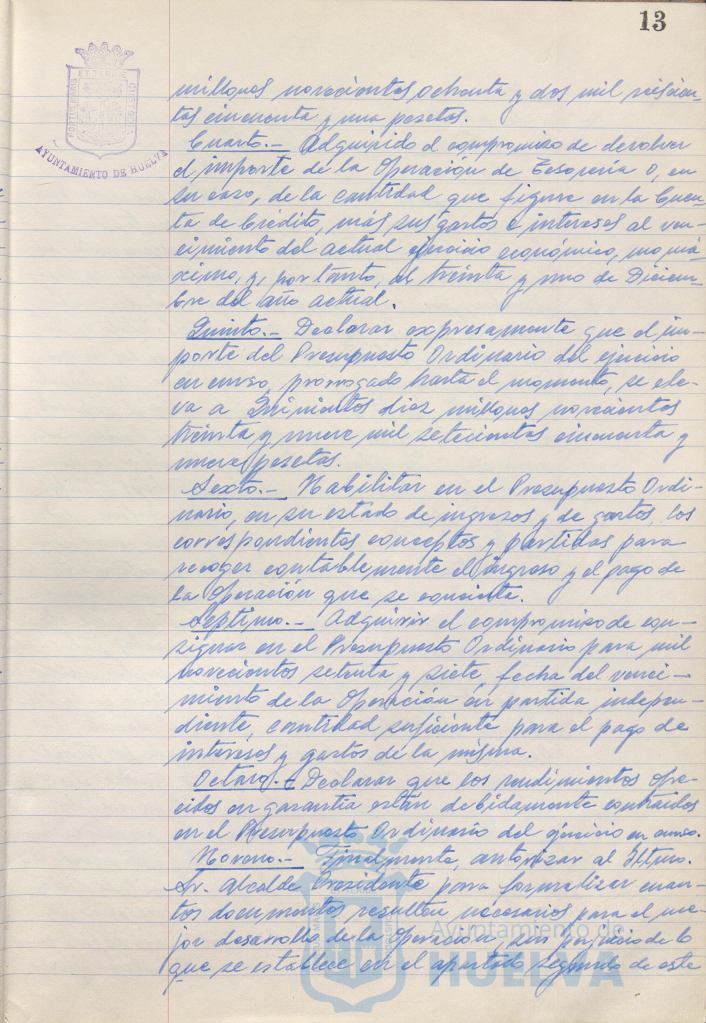 13
PORTUS MARIS ET TERRAE CUSTODIA
AYUNTAMIENTO DE HUELVA
millones novecientas ochenta y dos mil seiscien-
tas cincuenta y una pesetas.
Cuarto.- Adquirido el compromiso de devolver
el importe de la Operación de Tesorería o, en
su caso, de la cantidad que figure en la Cuen-
ta de Crédito, más sus gastos e intereses al ven-
cimiento del actual ejercicio económico, má-
ximo, y, por tanto, al treinta y uno de Diciem-
bre del año actual.
Quinto.- Declarar expresamente que el im-
porte del Presupuesto Ordinario del ejercicio
en curso, prorrogado hasta el momento, se ele-
va a Quinientos diez millones novecientas
treinta y nueve mil setecientas cincuenta y
nueve pesetas.
Sexto.- Habilitar en el Presupuesto Ordi-
nario, en su estado de ingresos y de gastos, los
correspondientes conceptos y partidas para
recoger contablemente el ingreso y el pago de
la Operación que se concierta.
Séptimo.- Adquirir el compromiso de con-
signar en el Presupuesto Ordinario para mil
novecientos setenta y siete, fecha del venci-
miento de la Operación en partida indepen-
diente, cantidad suficiente para el pago de
intereses y gastos de la misma.
Octavo.- Declarar que los rendimientos ofre-
cidos en garantía están debidamente contraídos
en el Presupuesto Ordinario del ejercicio en curso.
Noveno.- Finalmente, autorizar al Iltmo.
Sr. Alcalde Presidente para formalizar cuan-
tos documentos resulten necesarios para el me-
jor desarrollo de la Operación, sin perjuicio de lo
que se establece en el apartado segundo de este
Ayuntamiento de
HUELVA